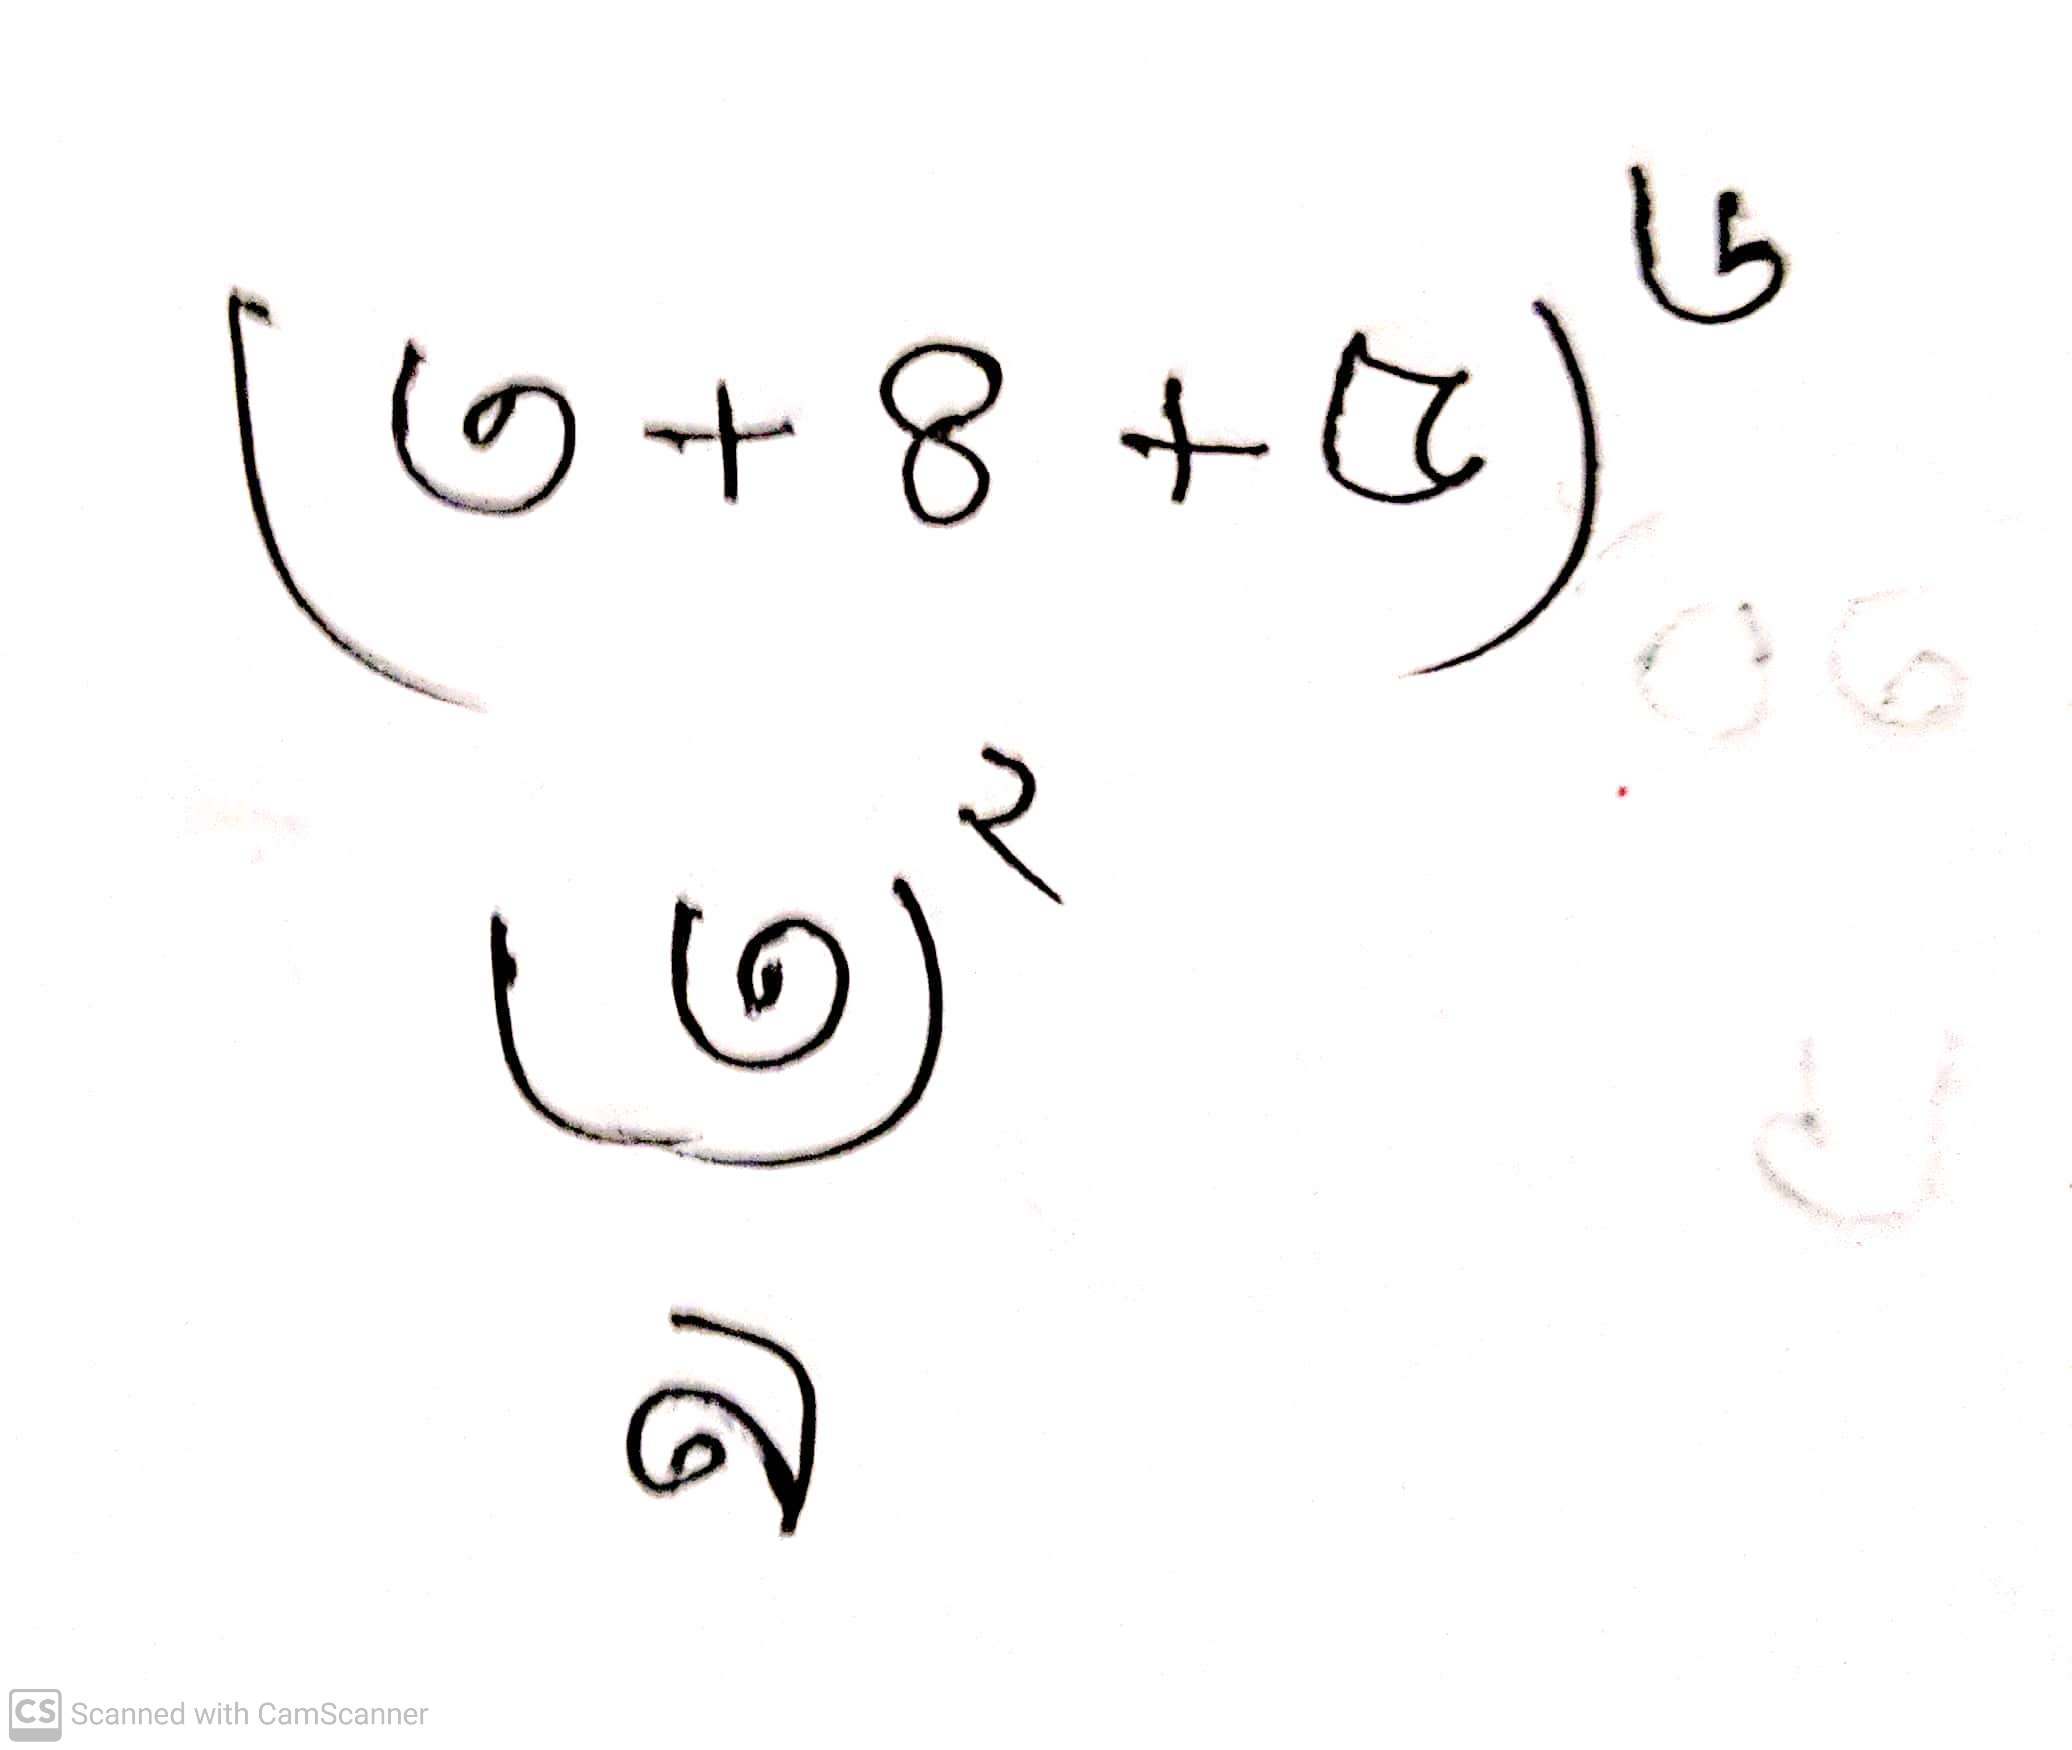 (৩+৪+৫)^৬
(৩)^২
৯
CS Scanned with CamScanner